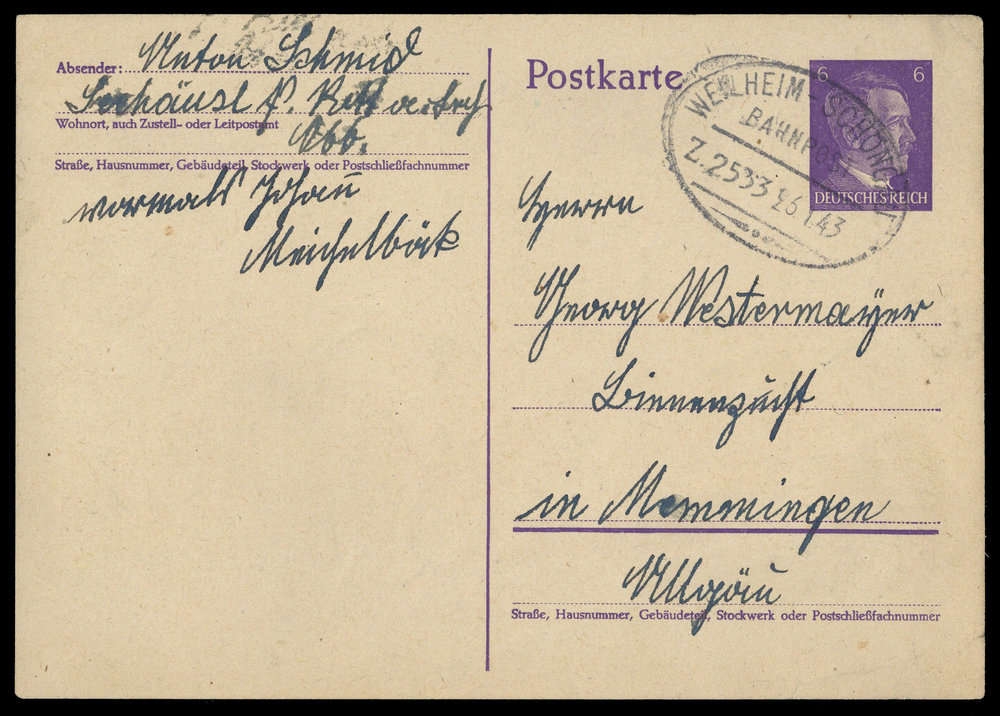 Absender: Anton Schmid
Seehäusl P. Rottenbuch
Wohnort, auch Zustell- oder Leitpostamt
Obb.
Straße, Hausnummer, Gebäudeteil, Stockwerk oder Postschließfachnummer
vormals Johan
Meichelböck
Postkarte
6 6
DEUTSCHES REICH
WEILHEIM - SCHONGAU
BAHNPOST
Z.2533 26 1 43
Herrn
Georg Westermayer
Bienenzucht
in Memmingen
Allgäu
Straße, Hausnummer, Gebäudeteil, Stockwerk oder Postschließfachnummer